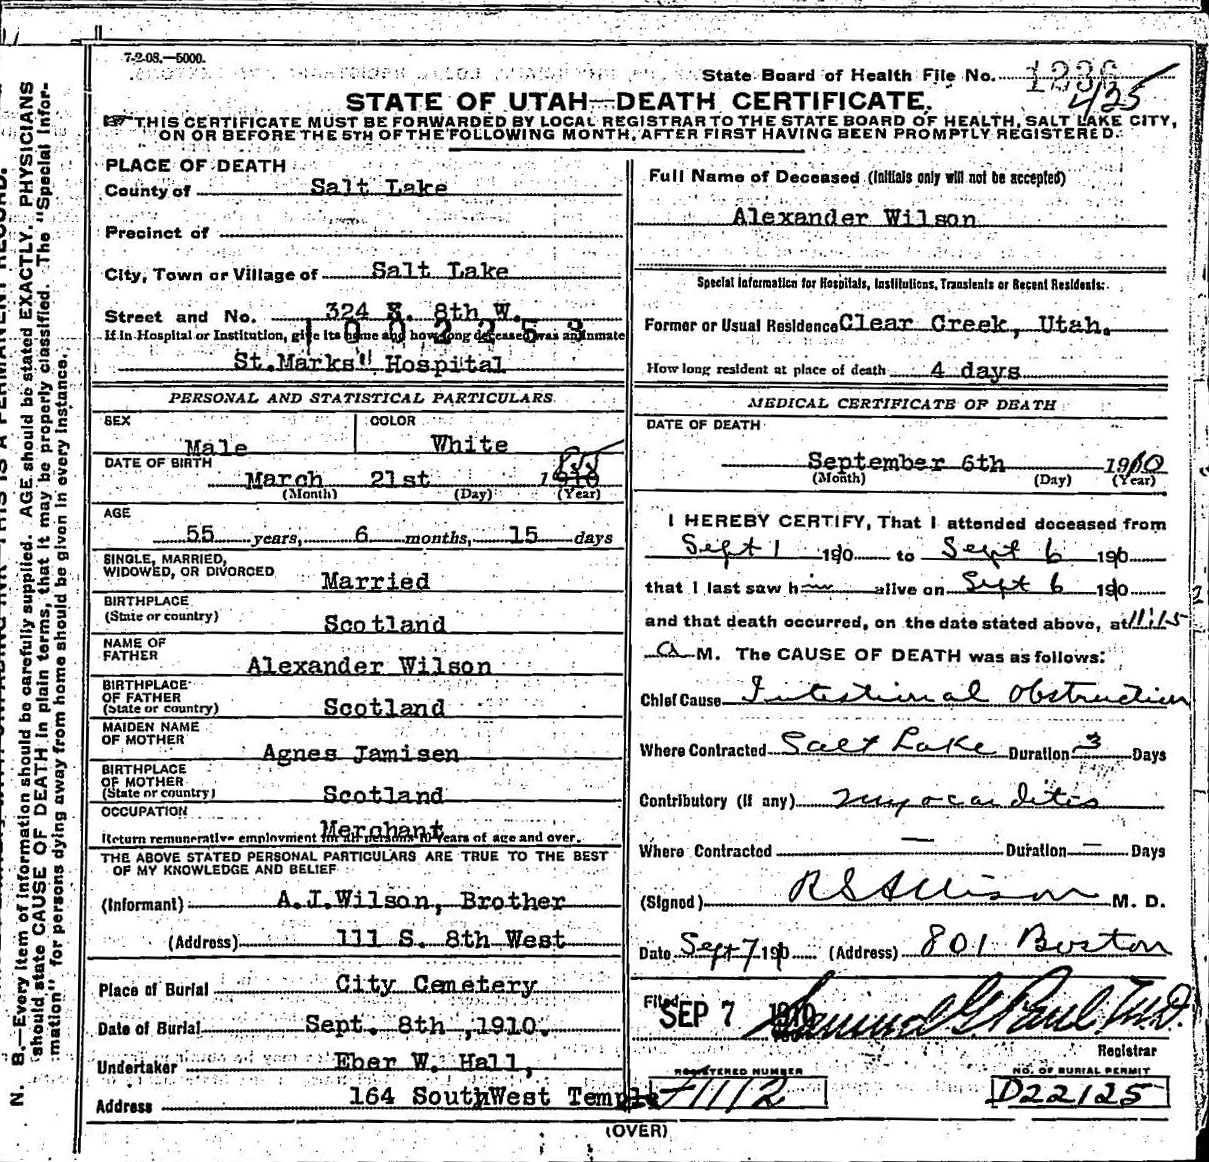 7-2-08.—5000.
State Board of Health File No. 1236
435
STATE OF UTAH—DEATH CERTIFICATE.
☞THIS CERTIFICATE MUST BE FORWARDED BY LOCAL REGISTRAR TO THE STATE BOARD OF HEALTH, SALT LAKE CITY,
ON OR BEFORE THE 5TH OF THE FOLLOWING MONTH, AFTER FIRST HAVING BEEN PROMPTLY REGISTERED.
PLACE OF DEATH
County of Salt Lake
Precinct of
City, Town or Village of Salt Lake
Street and No. 324 N. 8th W.
1002253
If in Hospital or Institution, give its name and how long deceased was an inmate
St.Marks' Hospital
PERSONAL AND STATISTICAL PARTICULARS
SEX Male
COLOR White
DATE OF BIRTH
March 21st 1910 855
(Month) (Day) (Year)
AGE
55 years, 6 months, 15 days
SINGLE, MARRIED,
WIDOWED, OR DIVORCED Married
BIRTHPLACE
(State or country) Scotland
NAME OF
FATHER Alexander Wilson
BIRTHPLACE
OF FATHER
(State or country) Scotland
MAIDEN NAME
OF MOTHER Agnes Jamisen
BIRTHPLACE
OF MOTHER
(State or country) Scotland
OCCUPATION
Merchant
Return remunerative employment for all persons 10 years of age and over.
THE ABOVE STATED PERSONAL PARTICULARS ARE TRUE TO THE BEST
OF MY KNOWLEDGE AND BELIEF
(Informant) A.J.Wilson, Brother
(Address) 111 S. 8th West
Place of Burial City Cemetery
Date of Burial Sept. 8th ,1910.
Undertaker Eber W. Hall,
Address 164 SouthWest Temple
Full Name of Deceased (Initials only will not be accepted)
Alexander Wilson
Special Information for Hospitals, Institutions, Transients or Recent Residents:
Former or Usual Residence Clear Creek, Utah.
How long resident at place of death 4 days
MEDICAL CERTIFICATE OF DEATH
DATE OF DEATH
September 6th 1910
(Month) (Day) (Year)
I HEREBY CERTIFY, That I attended deceased from
Sept 1 190 to Sept 6 190
that I last saw him alive on Sept 6 190
and that death occurred, on the date stated above, at 11:15
a M. The CAUSE OF DEATH was as follows:
Chief Cause Intestinal obstruction
Where Contracted Salt Lake Duration 3 Days
Contributory (if any) myocarditis
Where Contracted — Duration — Days
(Signed) R S Allison M. D.
Date Sept 7 190 (Address) 801 Boston
Filed SEP 7 1910 G Paul M.D.
Registrar
REGISTERED NUMBER
F1112
NO. OF BURIAL PERMIT
D22125
(OVER)
N. B.—Every item of information should be carefully supplied. AGE should be stated EXACTLY. PHYSICIANS
should state CAUSE OF DEATH in plain terms, that it may be properly classified. The "Special Infor-
mation" for persons dying away from home should be given in every instance.